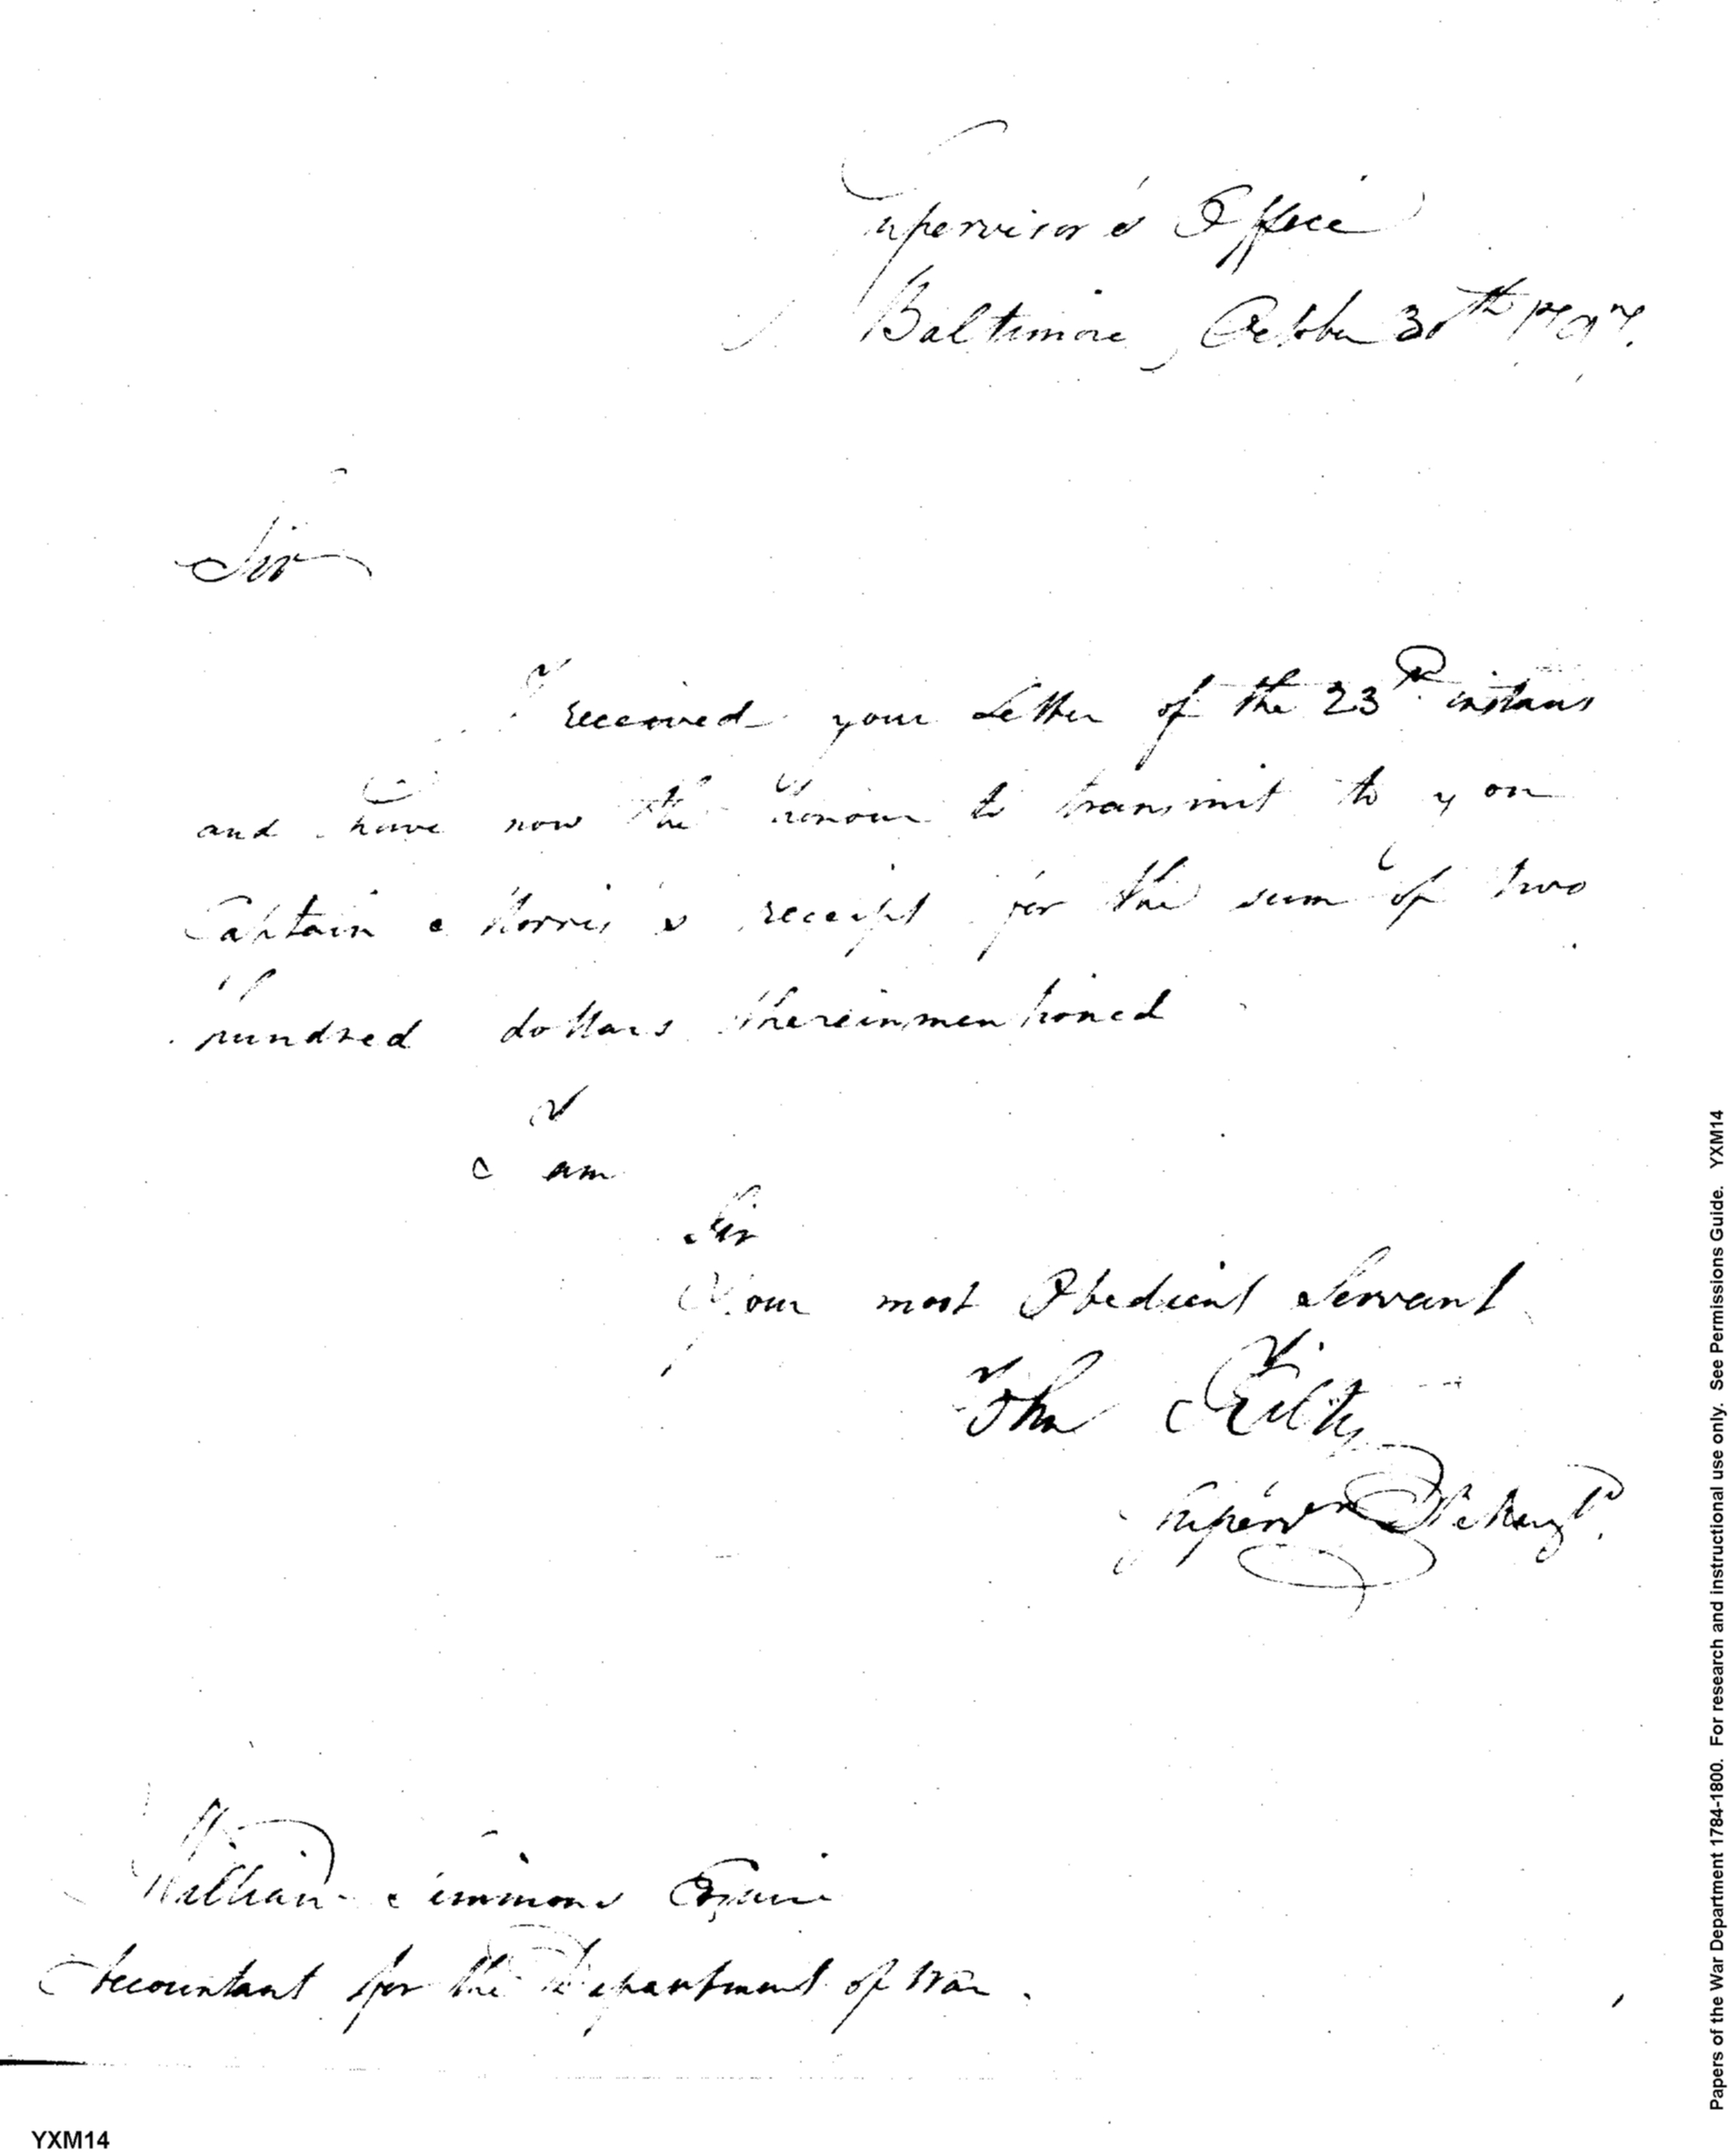 Supervisor's Office
Baltimore, October 30th 1797.
Sir
I received your Letter of the 23d instant
and have now the honour to transmit to you
Captain Morris's receipt for the sum of two
hundred dollars thereinmentioned
I am
Sir
Your most Obedient Servant
John Kilty
William Simmons Esquire
Accountant for the Department of War.
YXM14
Papers of the War Department 1784-1800. For research and instructional use only. See Permissions Guide. YXM14